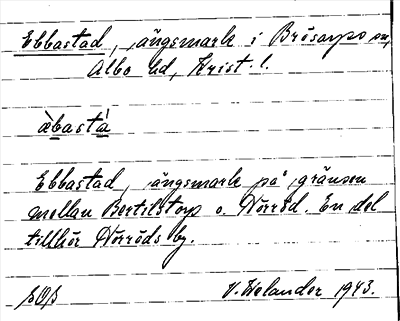 Ebbastad, ängsmark i Brösarps sn,
Albo hd, Krist. l.
àbastá
Ebbastad, ängsmark på gränsen
mellan Bertilstorp o. Norröd. En del
tillhör Norröds by.
V. Welander 1943.